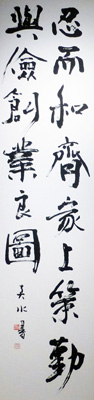 忍而和齊家上策勤
與儉創業良圖